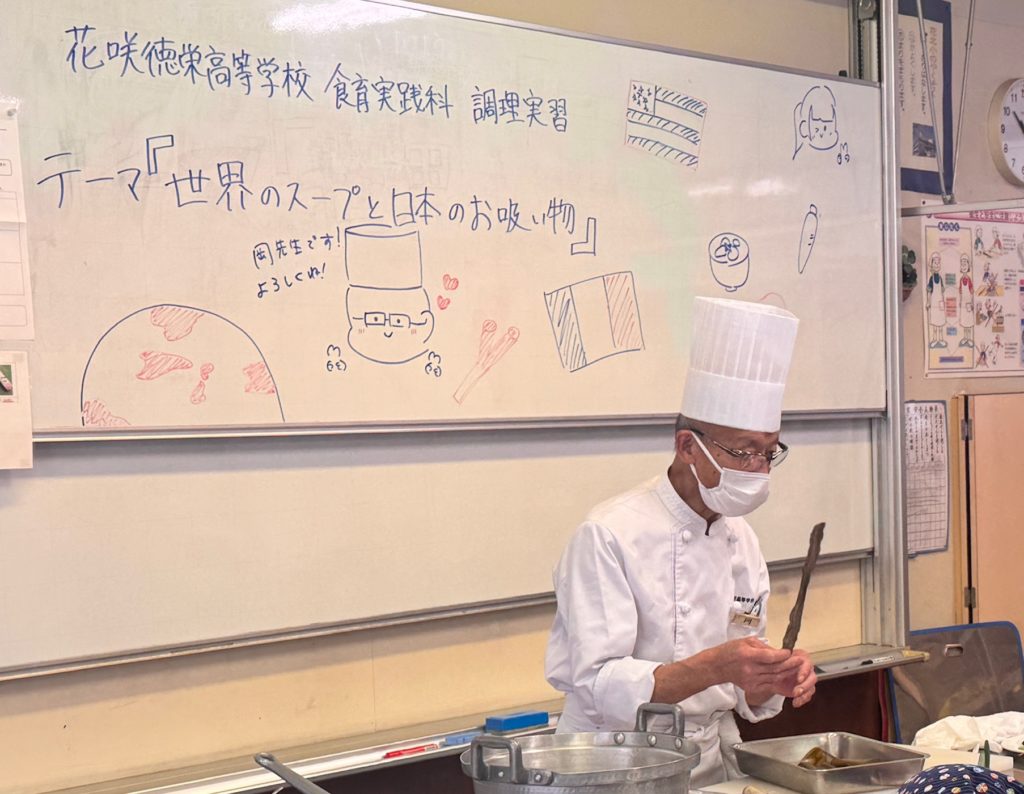 花咲徳栄高等学校 食育実践科 調理実習
テーマ『世界のスープと日本のお吸い物』
岡先生です!
よろしくね!